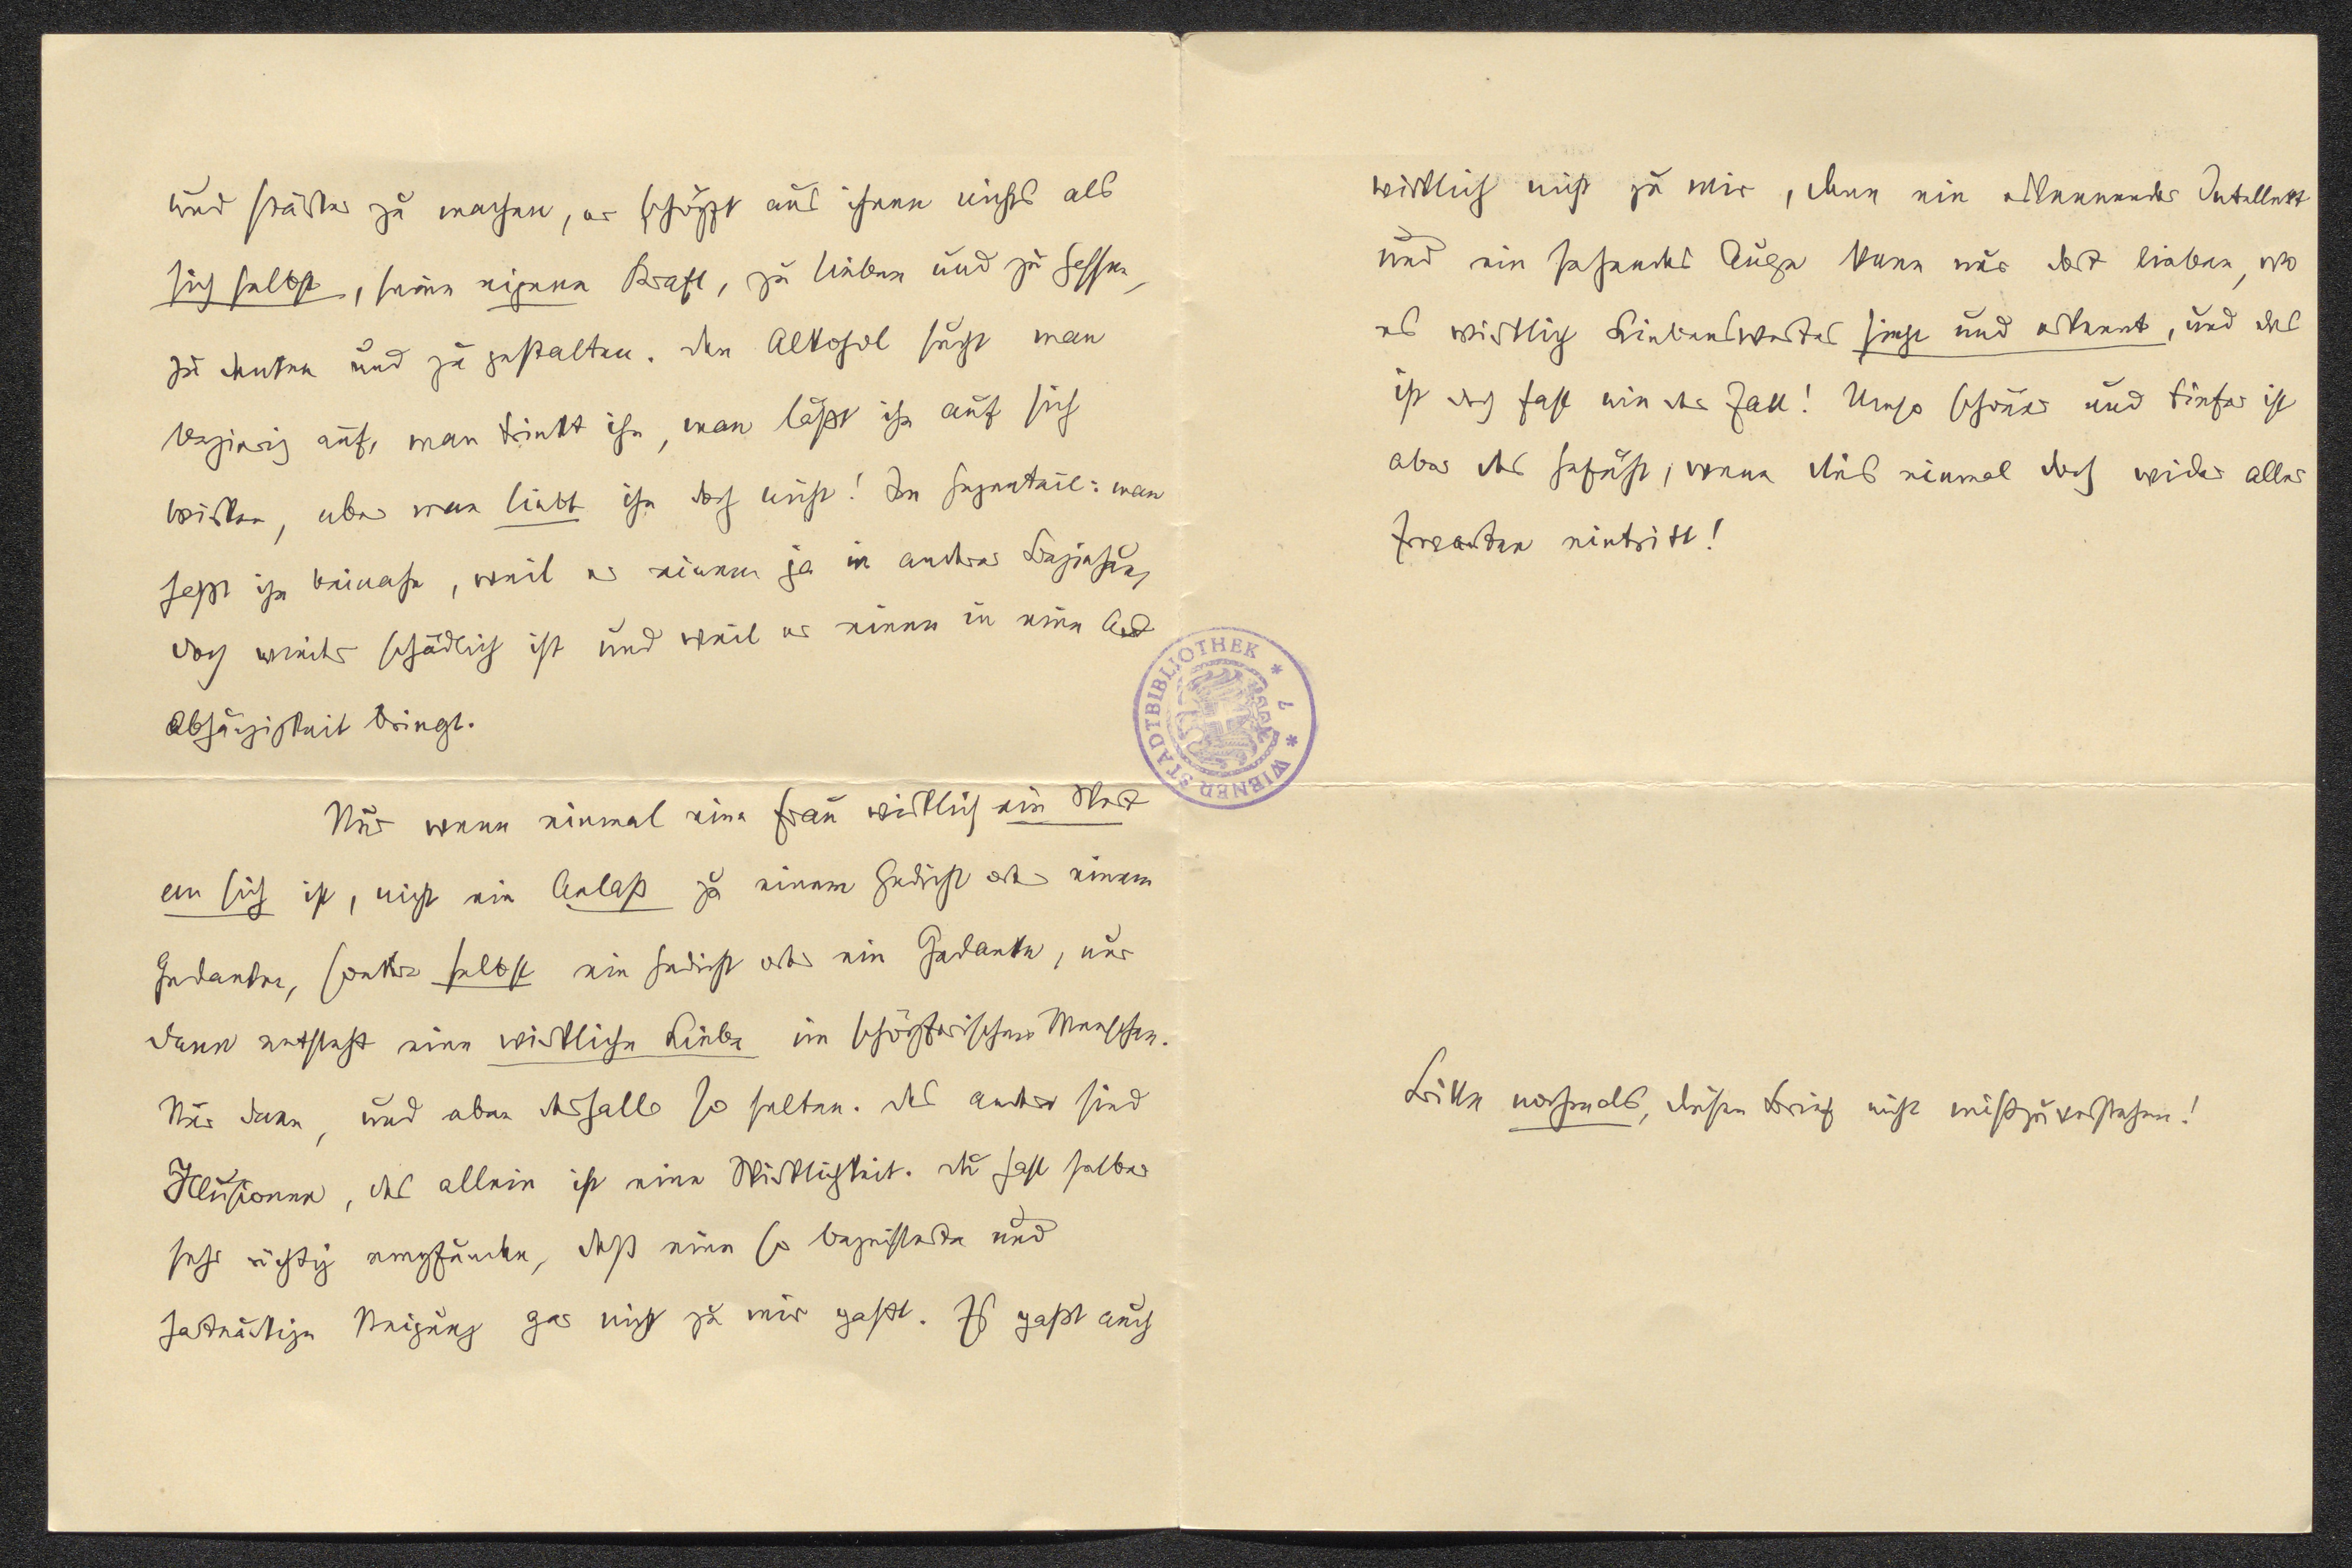 und stärker zu machen, er schöpft aus ihnen nichts als
sich selbst, seine eigene Kraft, zu lieben und zu hassen,
zu denken und zu gestalten. Den Alkohol sucht man
begierig auf, man trinkt ihn, man läßt ihn auf sich
wirken, aber man liebt ihn doch nicht! Im Gegenteil: man
haßt ihn beinahe, weil er einem ja in anderer Beziehung
doch wieder schädlich ist und weil er einen in eine Art
Abhängigkeit bringt.
Nur wenn einmal eine Frau wirklich ein Wert
an sich ist, nicht ein Anlaß zu einem Gedicht oder einem
Gedanken, sondern selbst ein Gedicht oder ein Gedanke, nur
dann entsteht eine wirkliche Liebe im schöpferischen Menschen.
Nur dann, und eben deshalb so selten. Das andere sind
Illusionen, das allein ist eine Wirklichkeit. Du hast selber
sehr richtig empfunden, daß eine so begeisterte und
hartnäckige Neigung gar nicht zu mir paßt. Es paßt auch
wirklich nicht zu mir, denn ein erkennender Intellekt
und ein sehendes Auge kann nur dort lieben, wo
es wirklich Liebenswertes sieht und erkennt, und das
ist doch fast nie der Fall! Umso schöner und tiefer ist
aber das Gefühl, wenn dies einmal doch wider alles
Erwarten eintritt!
Bitte nochmals, diesen Brief nicht mißzuverstehen!
WIENER STADTBIBLIOTHEK * 7 *